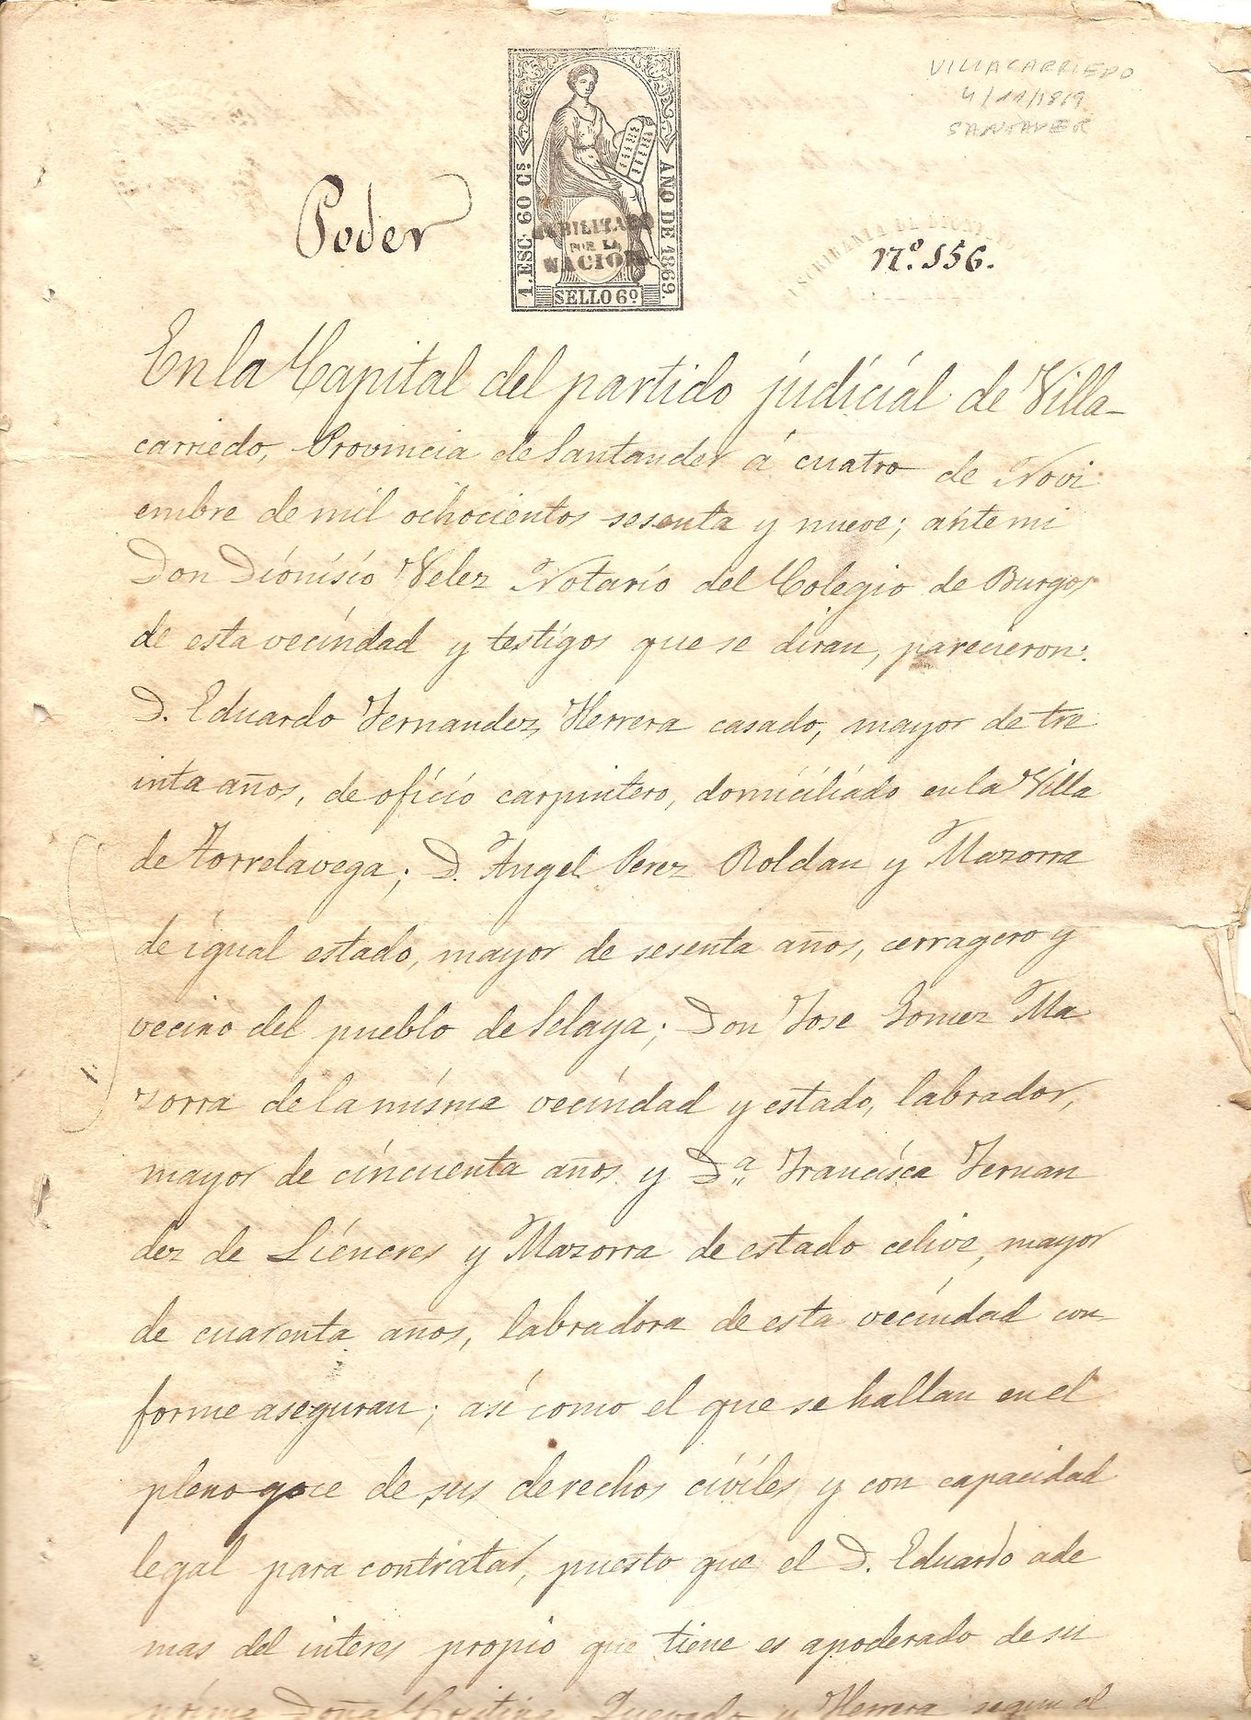 VILLACARRIEDO
4/11/1869
SANTANDER
1. ESC. 60 Cs
AÑO DE 1869.
HABILITADO
POR LA
NACION
SELLO 6º
Poder
ESCRIBANIA DE DIONISIO
Nº. 156.
En la Capital del partido judicial de Villa-
carriedo, Provincia de Santander á cuatro de Novi
embre de mil ochocientos sesenta y nueve; ante mi
Don Dionisio Velez Notario del Colegio de Burgos
de esta vecindad y testigos que se diran, parecieron:
D. Eduardo Fernandez Herrera casado, mayor de tre
inta años, de oficio carpintero, domiciliado en la Villa
de Torrelavega; D. Angel Perez Roldan y Mazorra
de igual estado, mayor de sesenta años, cerragero y
vecino del pueblo de Selaya; Don Jose Gomez Ma
zorra de la misma vecindad y estado, labrador,
mayor de cincuenta años y Da. Francisca Fernan
dez de Liencres y Mazorra de estado celive, mayor
de cuarenta años, labradora de esta vecindad con
forme aseguran; asi como el que se hallan en el
pleno goce de sus derechos civiles y con capacidad
legal para contratar, puesto que el D. Eduardo ade
mas del interes propio que tiene es apoderado de su
Doña Cristina Quevedo y Herrera segun el